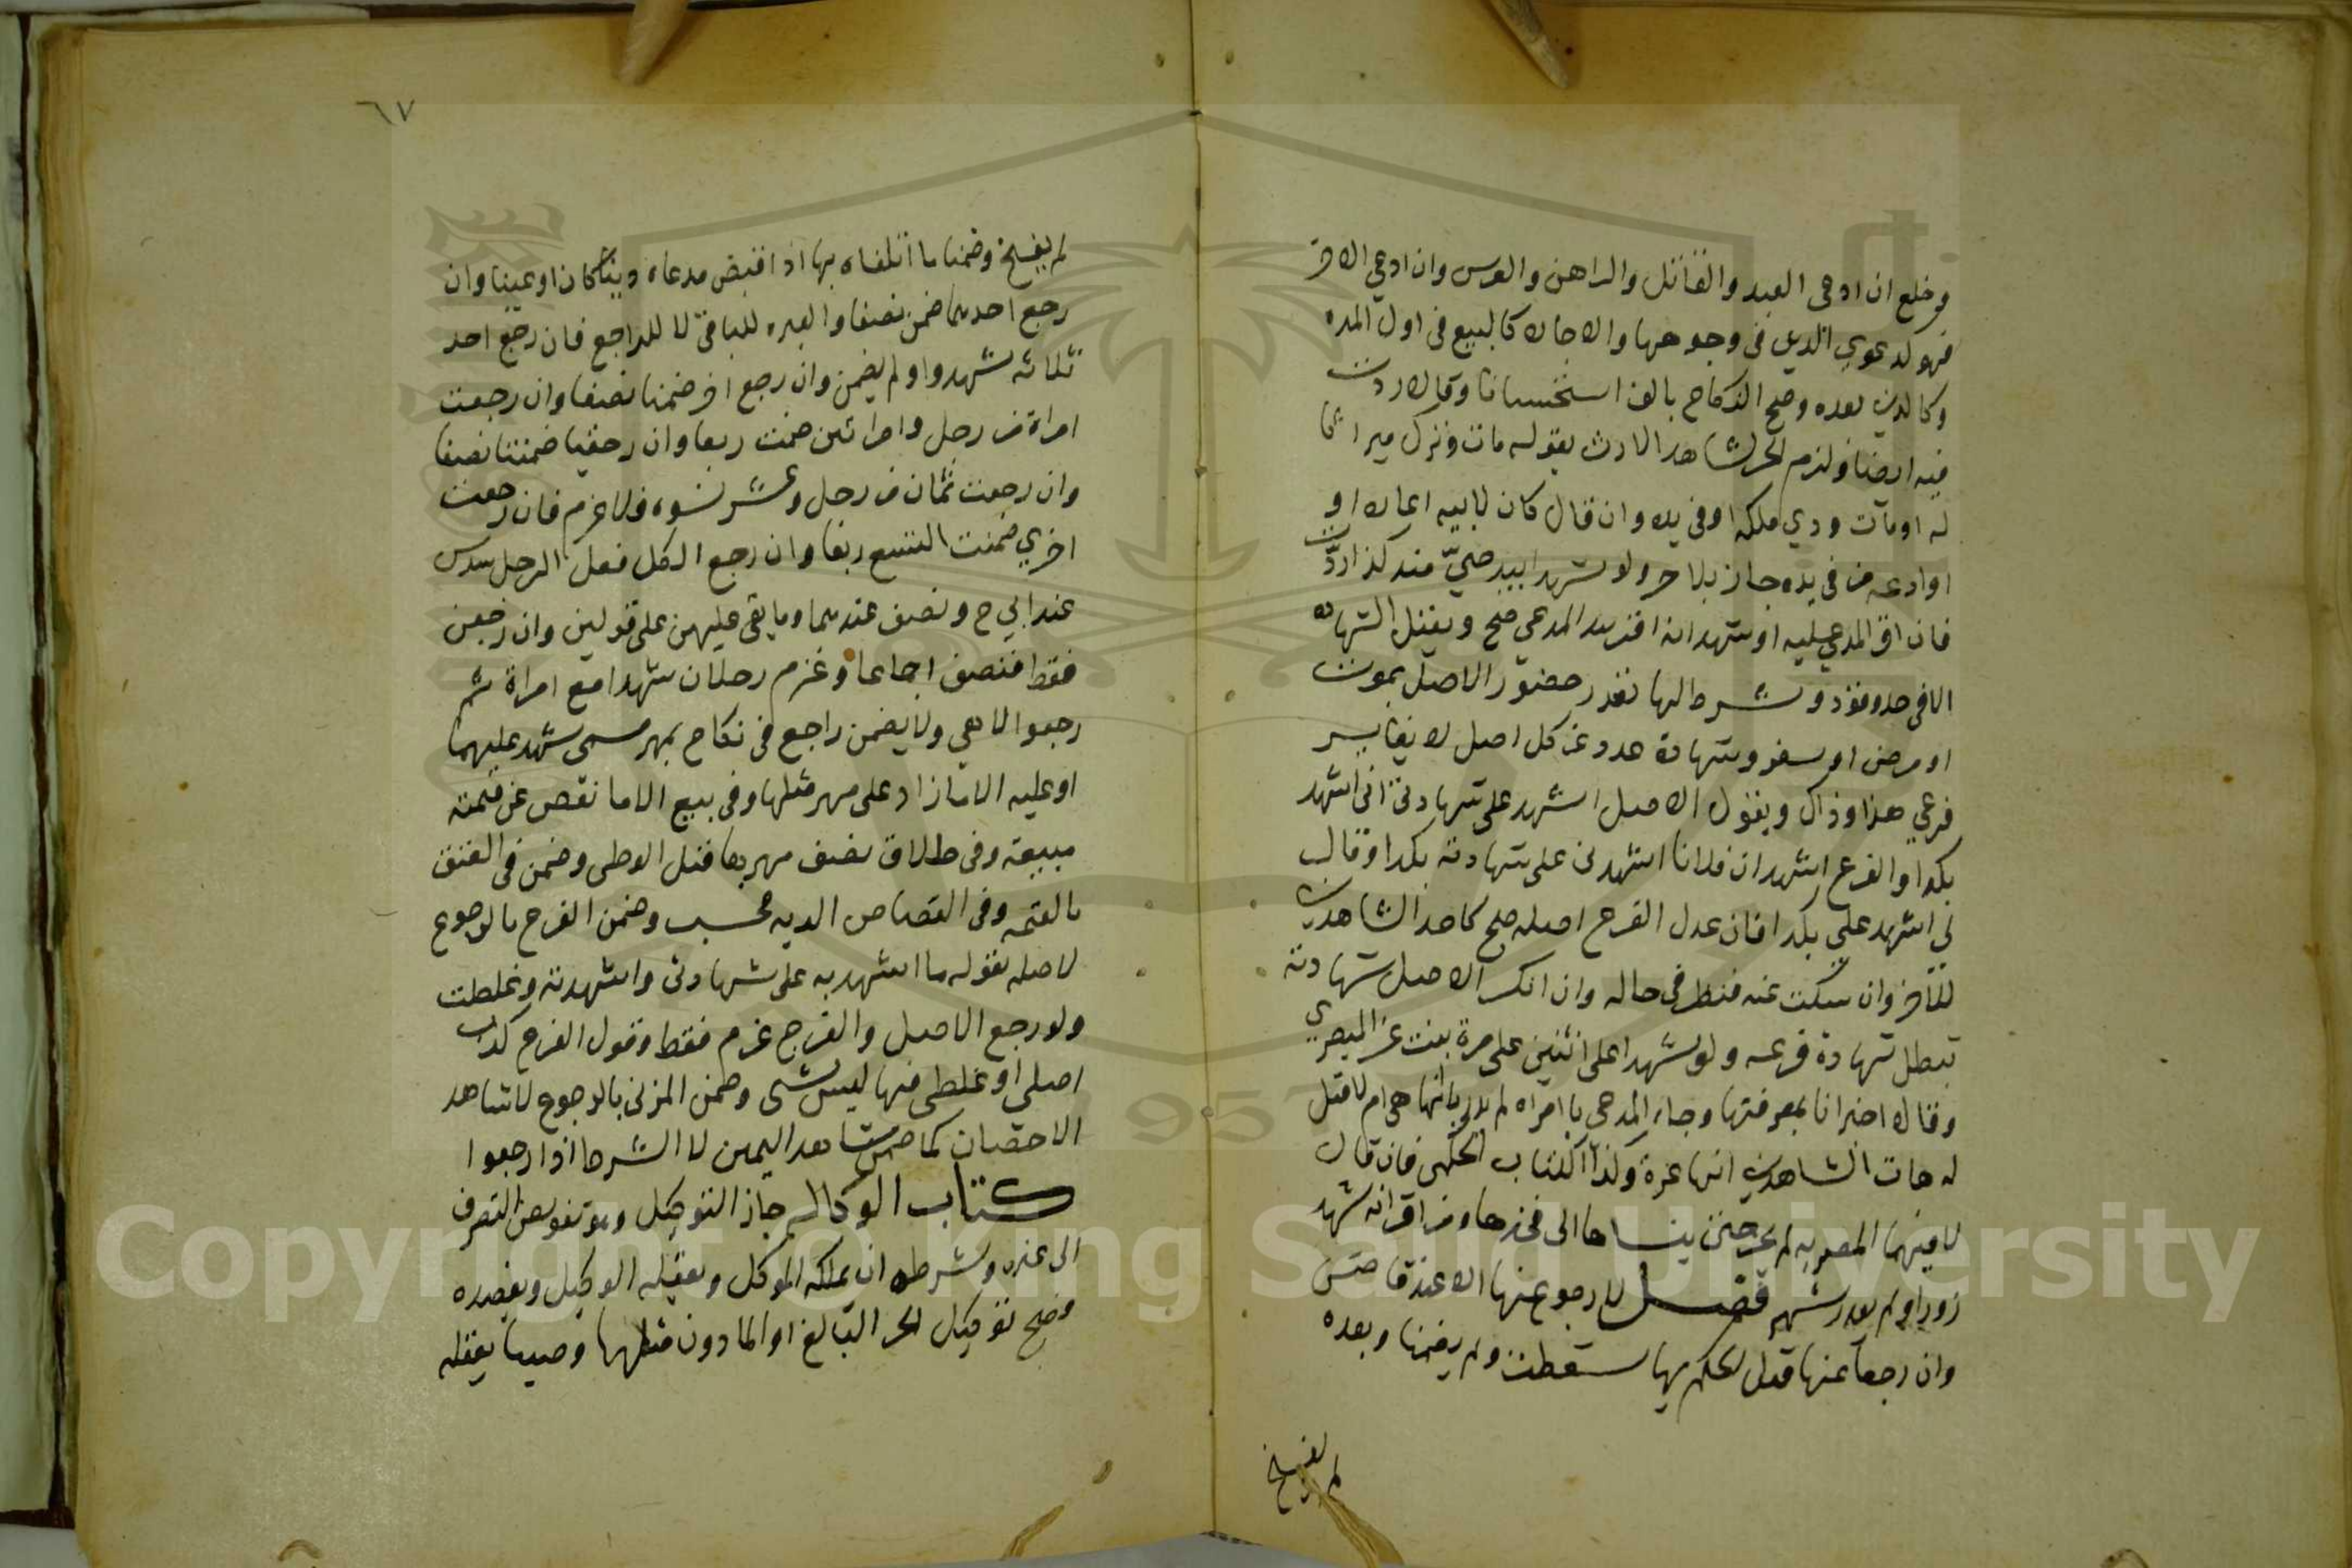 وخلع ان ادعى العبد والقاتل والراهن والعرس وان ادعى الاخر
فهو كدعوى الدين فى وجوهها والاجارة كالبيع فى اول المده
وكالدين بعده وصح النكاح بالف استحسانا وقالا ردت
فيه ايضا ولزم الجر لشاهد الارث بقوله مات وترك ميراثا
له او مات وذى ملكه او فى يده وان قال كان لابيه اعاره او
او ادعه من فى يده جاز بلا جر ولو شهدا بيد حى مند كذا ردت
فان اقر المدعى عليه او شهدا انه اقر بيد المدعى صح ويقبل الشهاده
الا فى حد وقود وشرط لها تعذر حضور الاصل بموت
او مرض او سفر وشهادة عدد عن كل اصل لا يغاير
فرعى هذا وذاك ويقول الاصل اشهد على شهادتى انى اشهد
بكذا والفرع اشهد ان فلانا اشهدنى على شهادته بكذا وقال
لى اشهد على بكذا فان عدل الفرع اصله صح كاحد الشاهدين
للاخر وان سكت عنه فنظر فى حاله وان انكر الاصل شهادته
تبطل شهادة فرعه ولو شهدا على اثنين على مرة بنت عز المصرى
وقالا اخبرانا بمعرفتها وجاء المدعى بامراه لم يدر بانها هى ام لا قيل
له هات الشاهدين انها عزة وكذا الكتاب الحكمى فان قال
لا فيهما المصريه لم يجز حتى ينسباها الى فخذها ومن اقر انه شهد
زورا ولم يعزر شهر فصل لا رجوع عنها الا عند قاض
وان رجعا عنها قبل الحكم بها سقطت ولم يضمنا وبعده
لم يفسخ
٦٧
لم يفسخ وضمنا ما اتلفاه بها اذا قبض مدعاه دينا كان او عينا وان
رجع احدهما ضمن نصفا والعبره للباقى لا للراجع فان رجع احد
ثلاثه شهدوا ولم يضمن وان رجع اخر ضمنا نصفا وان رجعت
امراة من رجل وامراتين ضمنت ربعا وان رجعتا ضمنتا نصفا
وان رجعت ثمان من رجل وعشر نسوه فلا غرم فان رجعت
اخرى ضمنت التسع ربعا وان رجع الكل فعلى الرجل سدس
عند ابى ح ونصف عندهما وما بقى عليهن على قولين وان رجعن
فقط فنصف اجماعا وغرم رجلان شهدا مع امراة ثم
رجعوا لا هى ولا يضمن راجع فى نكاح بمهر مسمى شهد عليهما
او عليه الا ما زاد على مهر مثلها وفى بيع الا ما نقص عن قيمته
مبيعته وفى طلاق نصف مهرها قبل الوطى وضمن فى العتق
بالقيمه وفى القصاص الديه فحسب وضمن الفرع بالرجوع
لا اصله بقوله ما اشهد به على شهادتى واشهدته وغلطت
ولو رجع الاصل والفرع غرم فقط وقول الفرع كذب
اصلى او غلطى فيها ليس بشى وضمن المزكى بالرجوع لا شاهد
الاحصان كما ضمن شاهد اليمين لا الشرط اذا رجعوا
كتاب الوكاله جاز التوكيل وهو تفويض التصرف
الى غيره وشرطه ان يملكه الموكل ويعقله الوكيل ويقصده
وصح توكيل الحر البالغ او الماذون مثلهما وصبيا يعقله
Copyright © King Saud University
1957